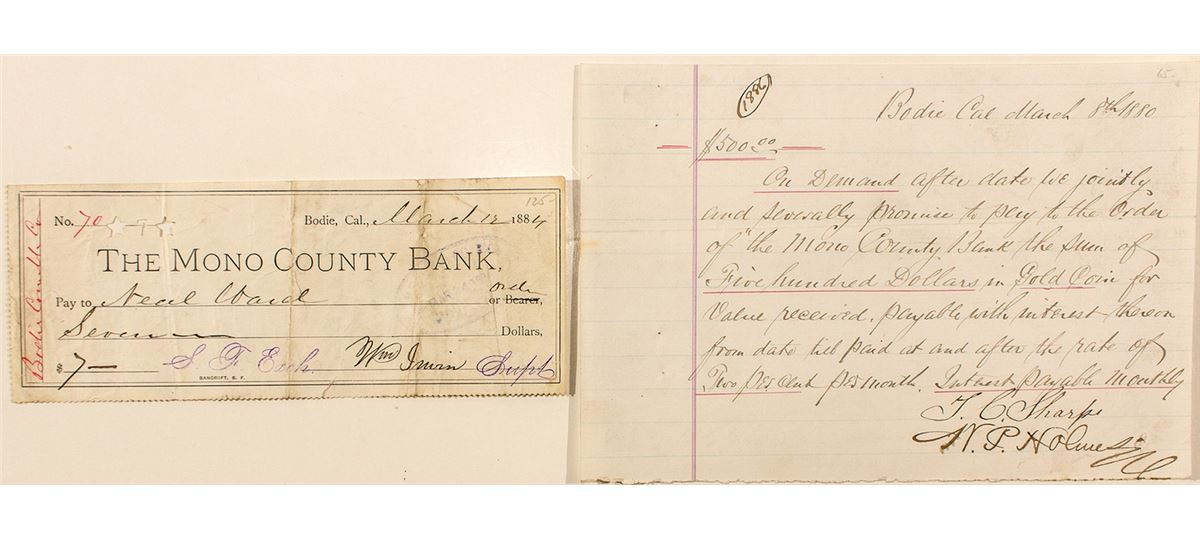 125-
No. 70
Bodie, Cal., March 12 1884
THE MONO COUNTY BANK,
Pay to Neal Ward order
or Bearer,
Seven Dollars,
$7—
S. F. Exch. Wm Irwin Supt
BANCROFT, S. F.
Bodie Con. M. Co
65-
1886
Bodie Cal March 8th 1880
$500.00
On Demand after date we jointly
and severally promise to pay to the Order
of "the Mono County Bank the sum of
Five hundred Dollars in Gold Coin for
Value received. payable with interest thereon
from date till paid at and after the rate of
Two per cent per month. Interest payable monthly
T. C. Sharp
W. P. Holmes